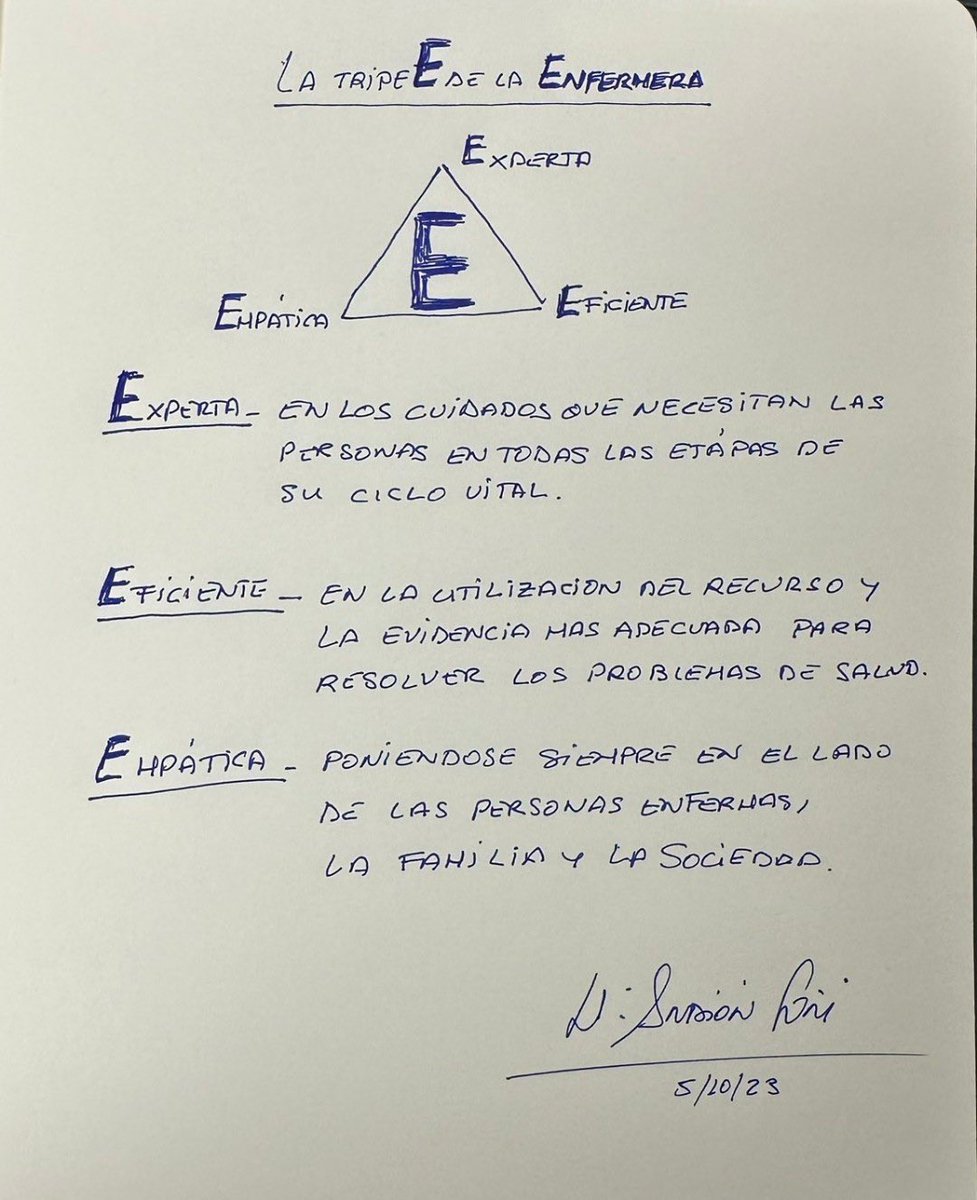 LA TRIPEE DE LA ENFERMERA
EXPERTA
E
EMPÁTICA
EFICIENTE
EXPERTA - EN LOS CUIDADOS QUE NECESITAN LAS
PERSONAS EN TODAS LAS ETÁPAS DE
SU CICLO VITAL.
EFICIENTE - EN LA UTILIZACION DEL RECURSO Y
LA EVIDENCIA MAS ADECUADA PARA
RESOLVER LOS PROBLEMAS DE SALUD.
EMPÁTICA - PONIENDOSE SIEMPRE EN EL LADO
DE LAS PERSONAS ENFERMAS,
LA FAMILIA Y LA SOCIEDAD.
5/10/23